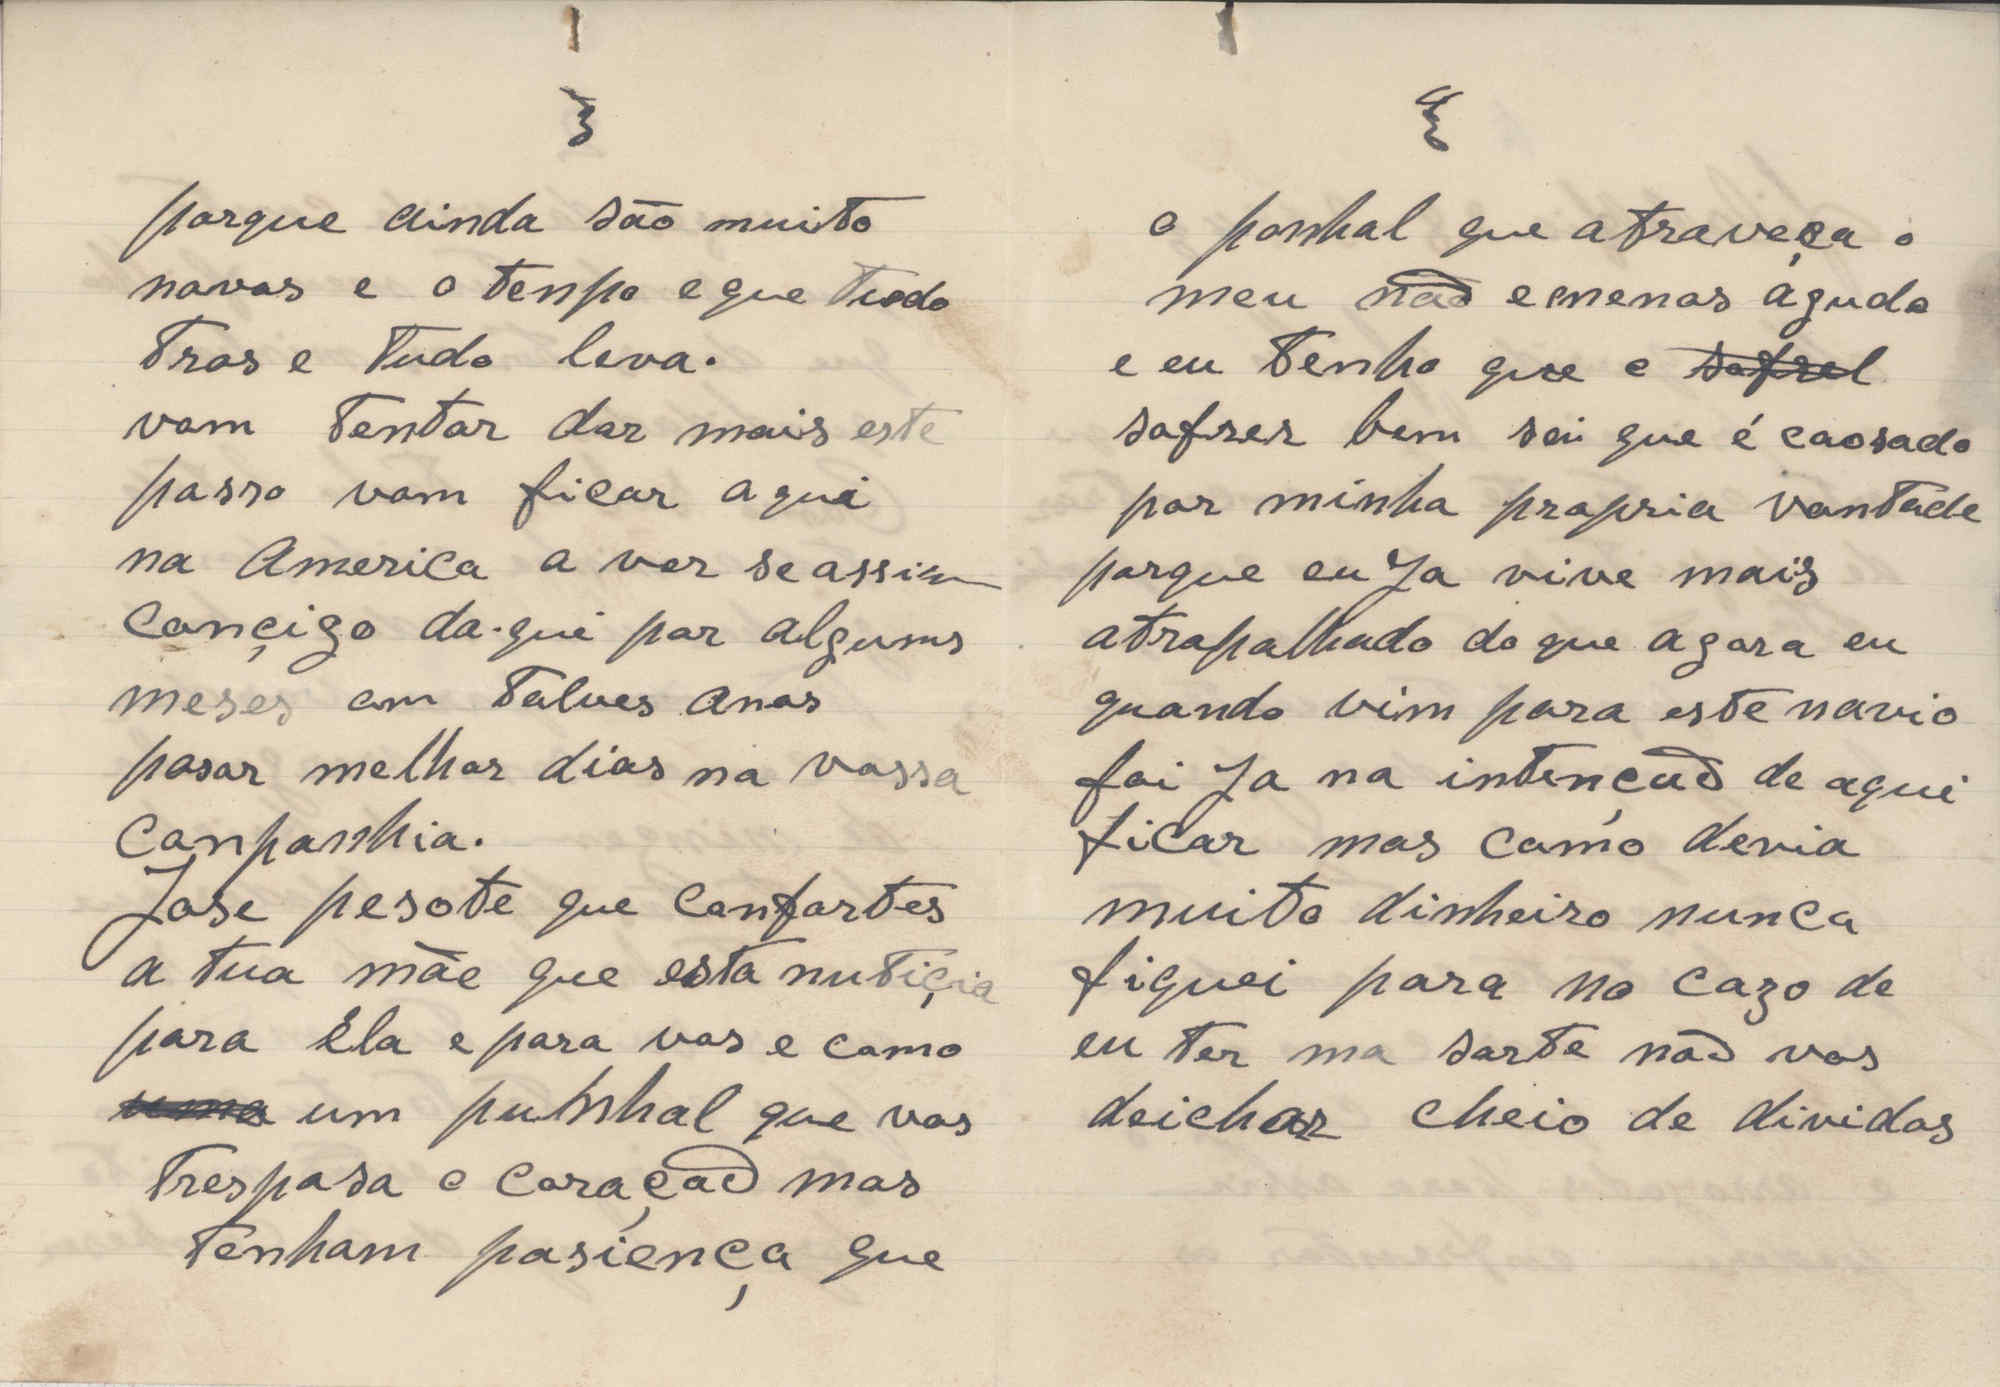 porque ainda são muito
novos e o tenpo e que tudo
tras e tudo leva.
vom tentar dar mais este
passo vom ficar aqui
na America a ver se assim
conçigo da-qui por algums
meses om talves anos
pasar melhor dias na vossa
conpanhia.
Jose pesote que confortes
a tua mãe que esta nutiçia
para Ela e para vos e como
uma um punhal que vos
trespasa o coraçaõ mas
tenham pasiença que
o ponhal que atraveça o
meu naõ e menos águdo
e eu tenho que o sofrel
sofrer bem sei que é caosado
por minha propria vontade
porque eu Ja vive mais
atrapalhado do que agora eu
quando vim para este navio
foi Ja na intençaõ de aqui
ficar mas como devia
muito dinheiro nunca
fiquei para no cazo de
eu ter ma sorte naõ vos
deichar cheio de dividas